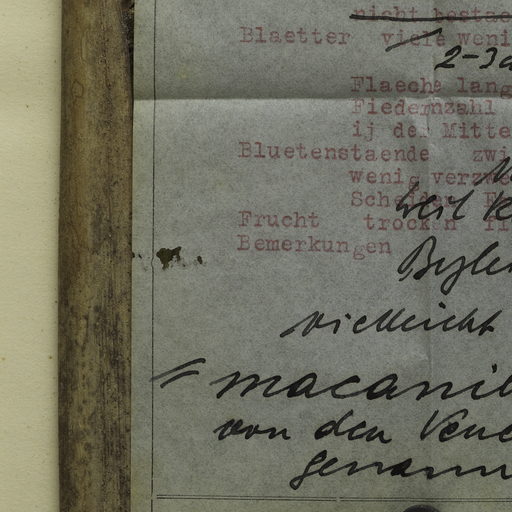 nicht bestac
Blaetter viele weni
2-3
Flaeche lang
Fiedernzahl
ij der Mitte
Bluetenstaende zwi
wenig verzwe
Scheiden
weil
Frucht trocken
Bemerkungen
vielleicht
= macanil
von den Vene
genann